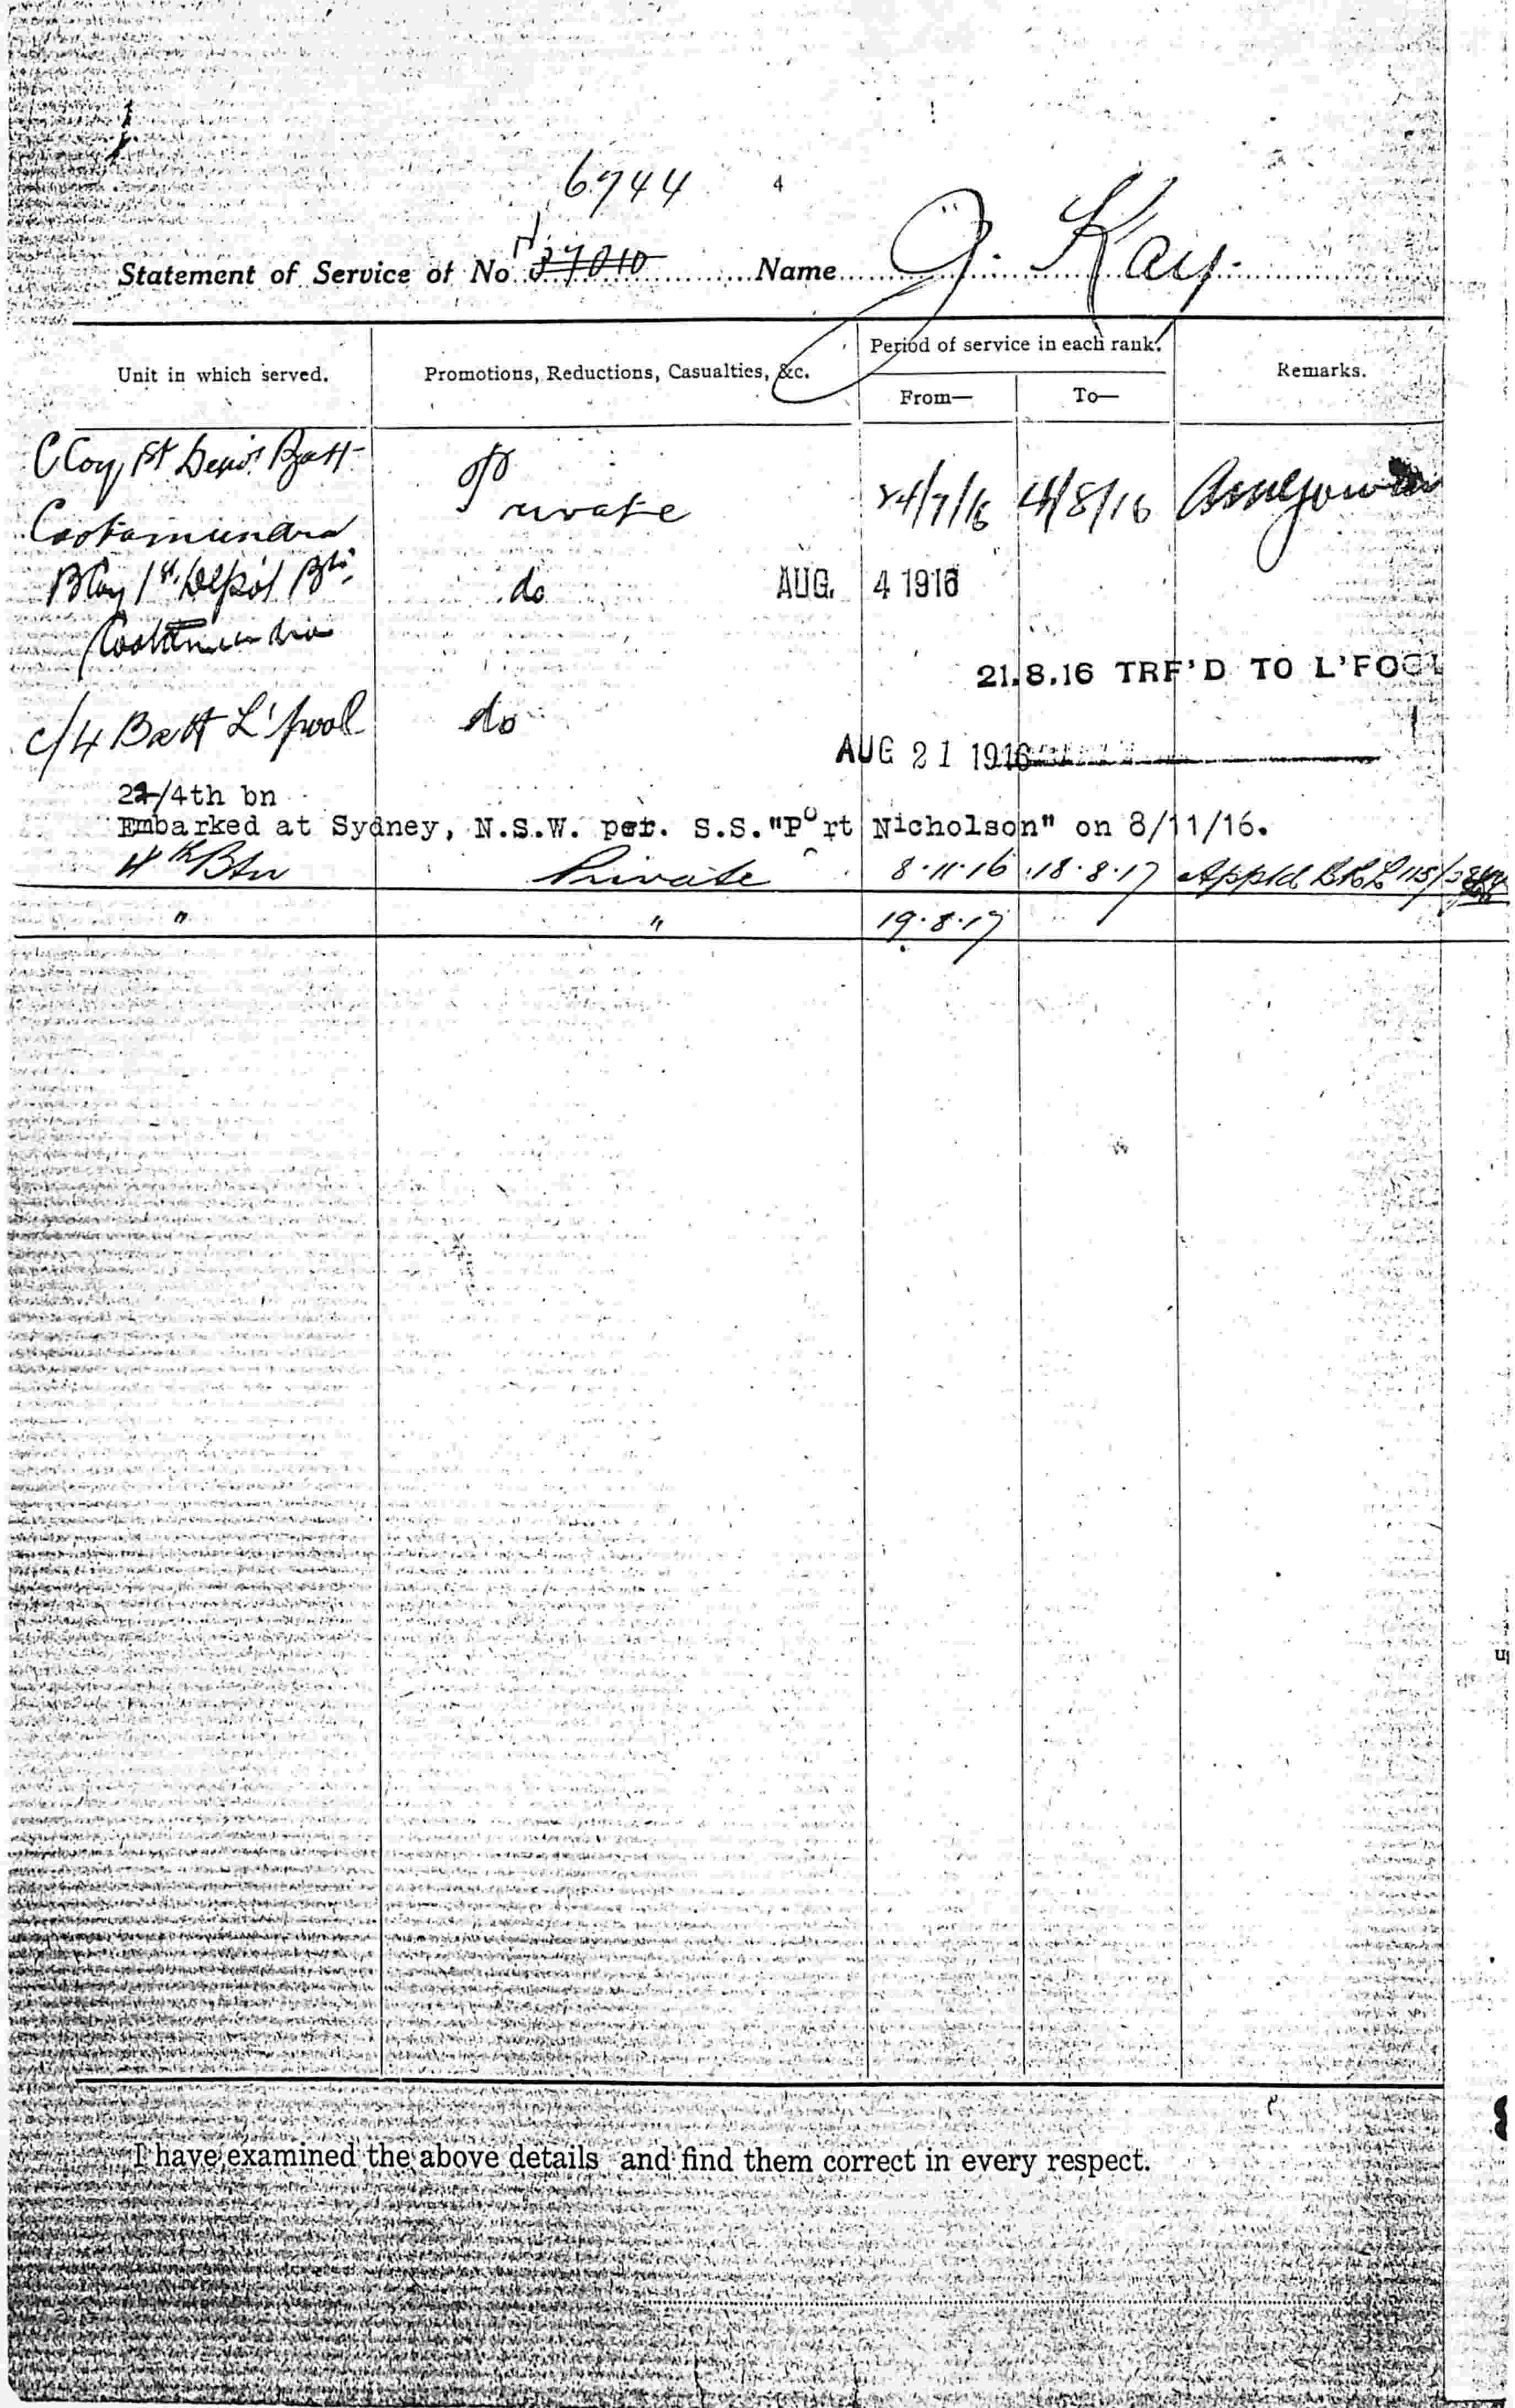 6744
4
Statement of Service of No. N37010 Name J. Kay.
Unit in which served.
Promotions, Reductions, Casualties, &c.
Period of service in each rank.
From—
To—
Remarks.
C Coy 1st Depot Batt
Cootamundra
Private
24/7/16
4/8/16
B Coy 1st Depot Btn
Cootamundra
do
AUG. 4 1916
21.8.16 TRF'D TO L'POOL
c/4 Batt L'pool
do
AUG 21 1916
22/4th bn
Embarked at Sydney, N.S.W. per. S.S. "Port Nicholson" on 8/11/16.
4th Btn Private 8.11.16 18.8.17
" " 19.8.17
I have examined the above details and find them correct in every respect.